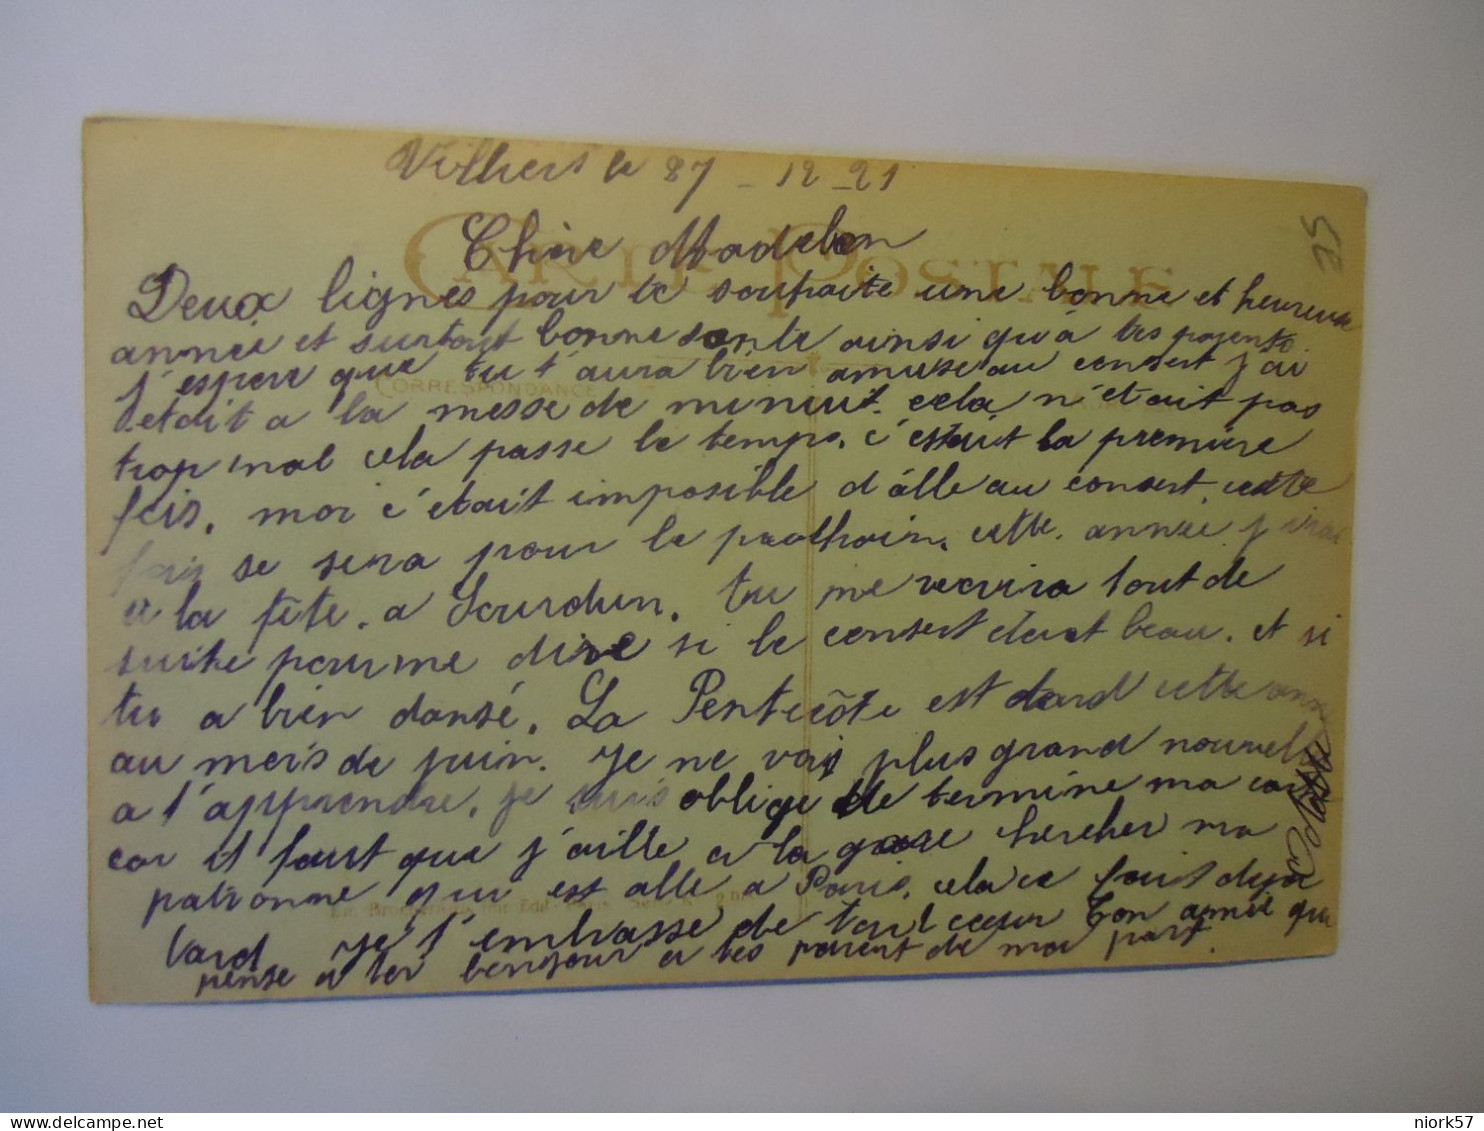 Villiers le 27 - 12 - 21
25
CARTE POSTALE
Chère Madelon
Deux lignes pour te souhaite une bonne et heureuse
année et surtout bonne sante ainsi qu'à tes parents.
j'espere que tu t'aura bien amuse au consert j'ai
CORRESPONDANCE
était a la messe de minuit cela n'était pas
trop mal cela passe le temps. c'était la première
fois. moi c'était imposible d'âlle au consert. cette
fois se sera pour le prochain. cette. année j'irai
a la fête. a Lourdun. tu me recrira tout de
suite pour me dire si le consert était beau. et si
tu a bien dansé. La Pentecôte est tard cette anné
au mois de juin. Je ne vois plus grand nouvelle
a t'apprendre. je suis oblige de termine ma carte
car il faut que j'aille a la gare chercher ma
patronne qui est alle a Paris. cela ce fait deja
tard je t'embrasse de tout cœur Ton amie qui
pense a toi bonjour a tes parent de ma part.
niork57